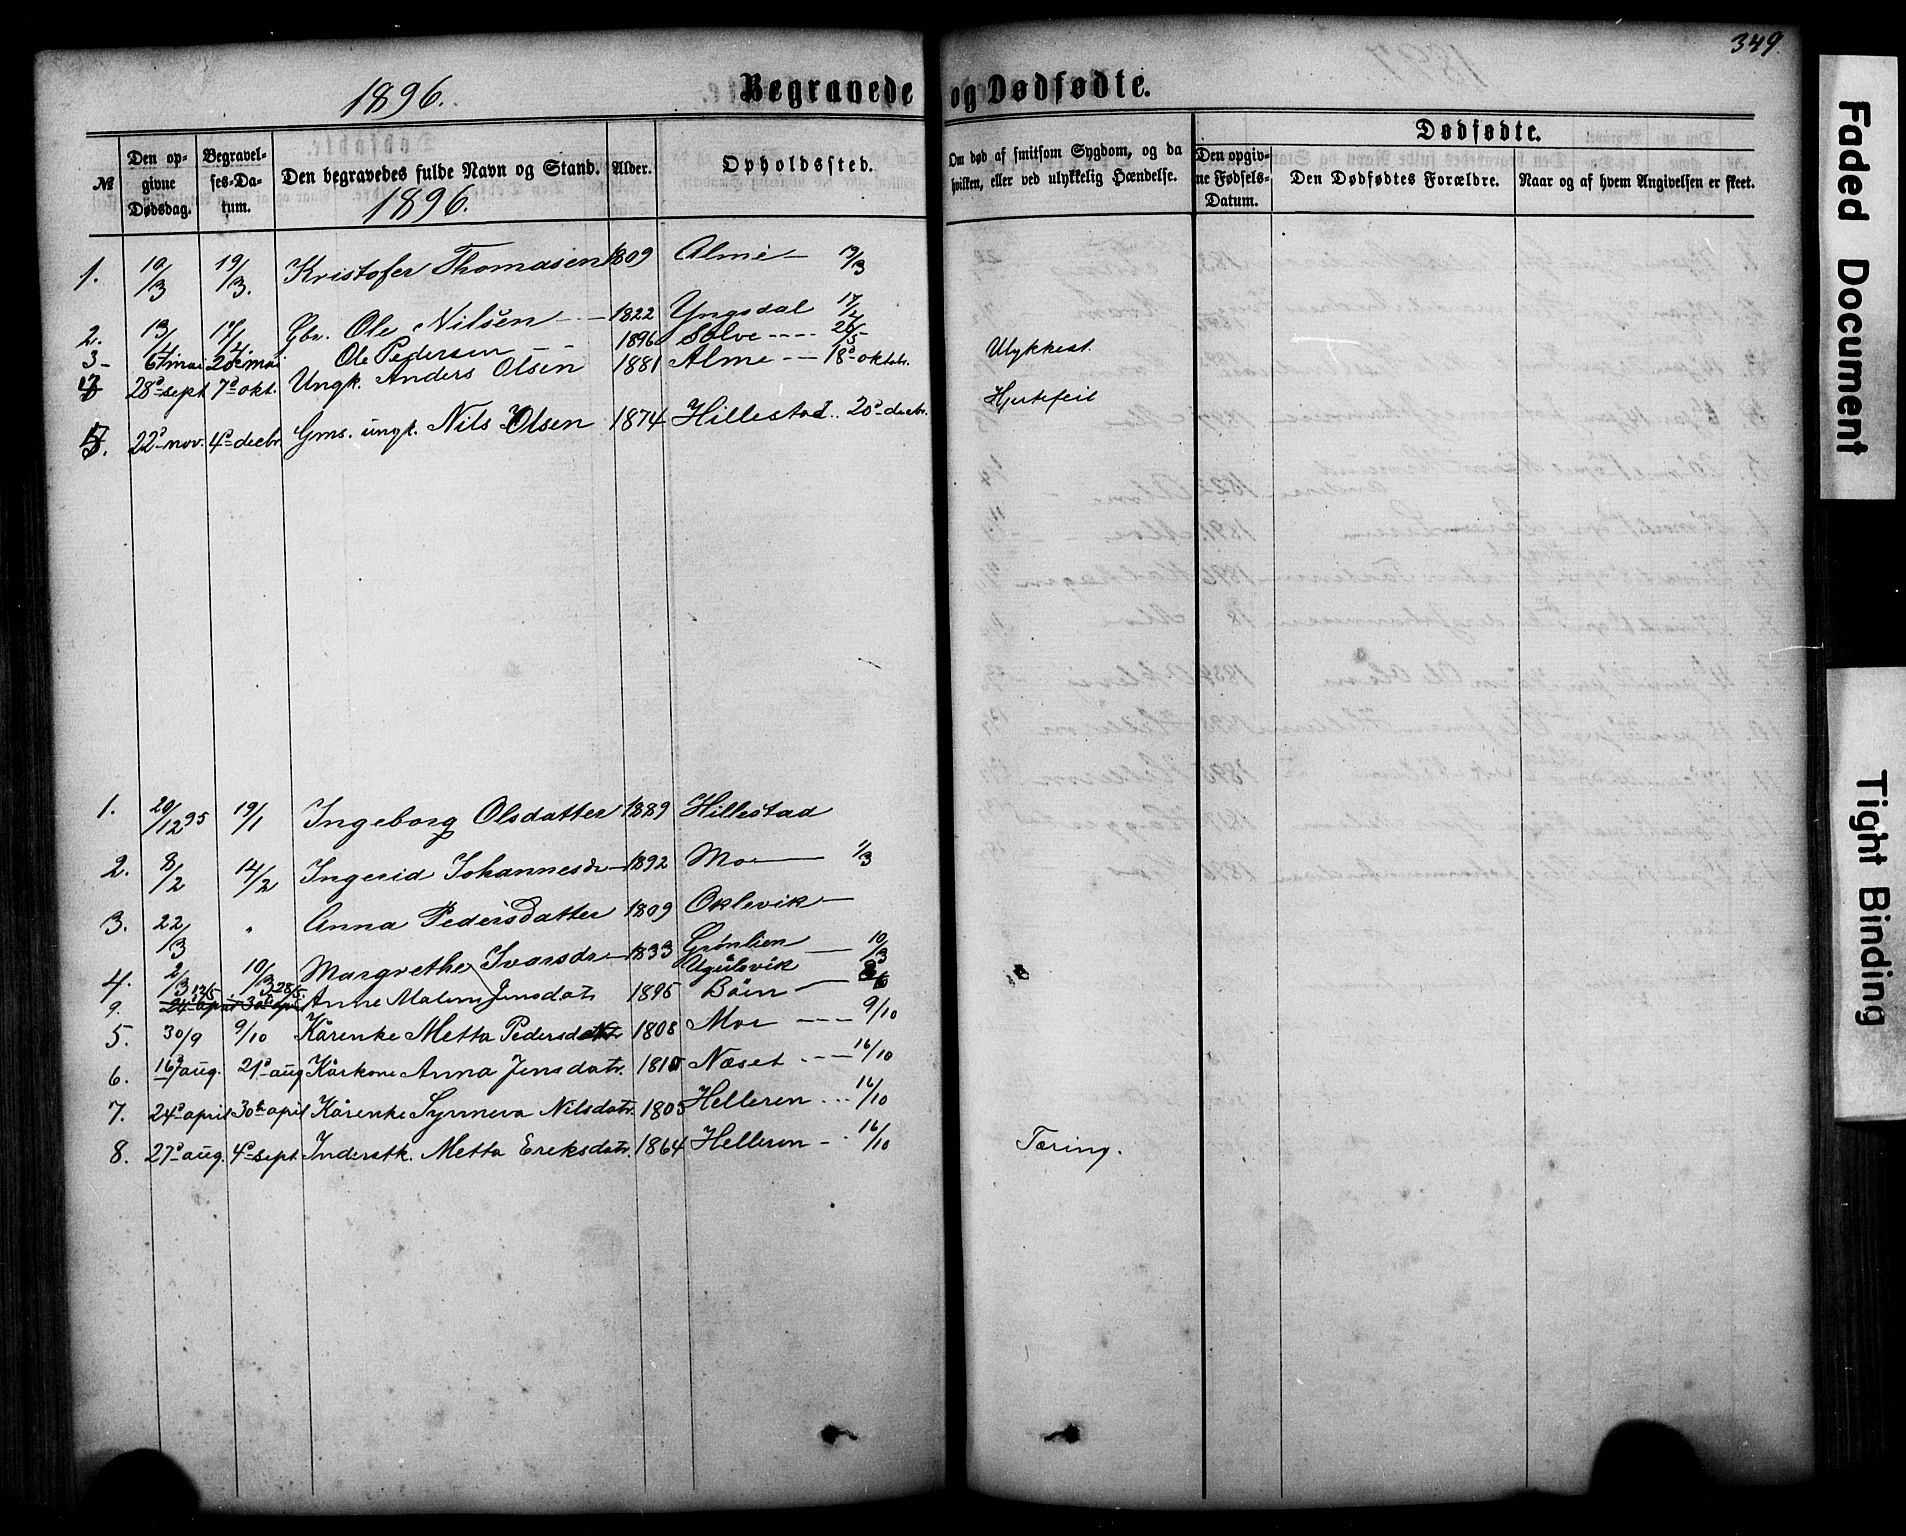 349
1896. Begravede og Dødfødte.
Dødfødte.
№ Den opgivne Dødsdag. Begravelses-Datum. Den begravedes fulde Navn og Stand. Alder. Opholdssted. Om død af smitsom Sygdom, og da hvilken, eller ved ulykkelig Hændelse. Den opgivne Fødsels-Datum. Den Dødfødtes Forældre. Naar og af hvem Angivelsen er skeet.
1896.
1. 10/3 19/3. Kristofer Thomasen 1809 Alme 19/3
2. 13/4 17/4 Gbr. Ole Nilsen 1822 Yngsdal 17/4
3 6te mai 20de mai Ole Pedersen 1896 Solve 26/5 Ulykkest.
28d sept 7d okt. Ungk. Anders Olsen 1881 Alme 18d oktob. Hjertefeil
5. 22d nov. 4d decbr. Gms. ungk. Nils Olsen 1874 Hillestad 20d decbr.
1. 20/12 95 19/1 Ingeborg Olsdatter 1889 Hillestad
2. 8/2 14/2 Ingerid Johannesdr 1892 Mo 1/3
3. 22/3 " Anna Pedersdatter 1809 Oklevik
4. 2/3 10/3 Margrethe Ivarsdr 1833 Grønlien 10/3
9. 13/5 28/5 Anne Malene Jensdatr 1895 Ugulsvik Bøen
5. 30/9 9/10 Kårenke Metta Pedersdatr 1808 Moe 9/10
6. 16d aug. 21d aug Kårkone Anna Jensdatr. 1810 Næset 16/10
7. 24d april 30te april Kårenke Synneva Nilsdatr. 1805 Helleren 16/10
8. 27d aug. 4d sept. Inderstk. Metta Eriksdatr. 1864 Helleren 16/10 Tæring.
Faded Document
Tight Binding